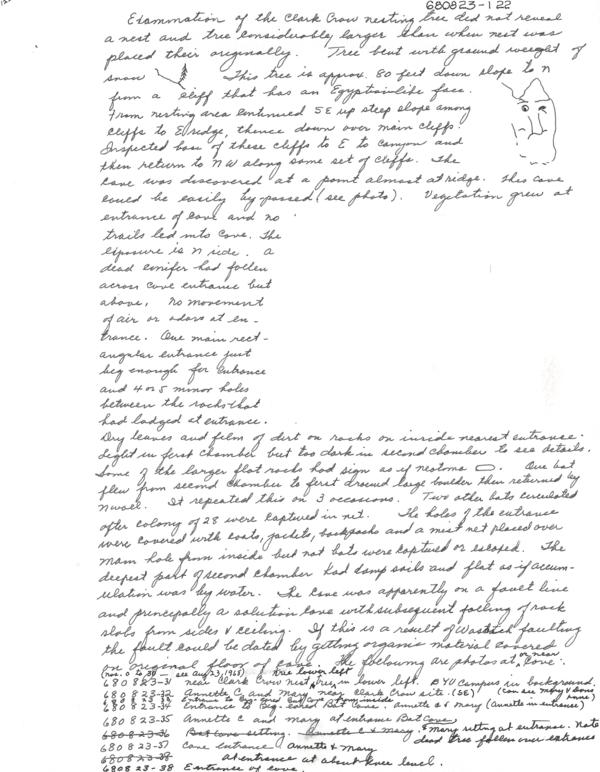 680823-122
Examination of the Clark Crow nesting tree did not reveal
a nest and tree considerably larger than when nest was
placed their originally. Tree bent with ground weight of
snow This tree is approx. 80 feet down slope to N
from a cliff that has an Egyptianlike face.
From nesting area continued SE up steep slope among
cliffs to E ridge, thence down over main cliffs.
Inspected base of these cliffs to E to Canyon and
then return to NW along same set of cliffs. The
cave was discovered at a point almost at ridge. This cave
could be easily by passed (see photo). Vegetation grew at
entrance of cave and no
trails led into cave. The
exposure is N side. A
dead conifer had fallen
across cave entrance but
above, no movement
of air or odors at en-
trance. One main rect-
angular entrance just
big enough for entrance
and 4 or 5 minor holes
between the rocks that
had lodged at entrance.
Dry leaves and film of dirt on rocks on inside nearest entrance.
Light in first chamber but too dark in second chamber to see details.
Some of the larger flat rocks had sign as if neotoma. One bat
flew from second chamber to first around large boulder then returned by
N wall. It repeated this on 3 occasions. Two other bats circulated
after colony of 28 were captured in net. The holes of the entrance
were covered with coats, jackets, backpacks and a mist net placed over
main hole from inside but not bats were captured or escaped. The
deepest part of second chamber had damp soils and flat as if accum-
ulation was by water. The cave was apparently on a fault line
and principally a solution cave with subsequent falling of rock
slabs from sides & ceiling. If this is a result of Wasatch faulting
the fault could be dated by getting organic material covered
on original floor of cave. The following are photos at, or near cave:
(nos. 0 to 30 - see Aug 23, 1968) tree lower left
680823-31 near Clark Crow nest tree in lower left. BYU Campus in background.
680823-32 Annette C. and Mary near Clark Crow site. (SE) (Can see Mary &
680823-33 Entrance to Big-eared Bat Cave from inside
680823-34 Entrance to Big-eared Bat Cave. Annette & Mary (Annette in entrance)
680823-35 Annette C and Mary at entrance Bat Cave
680823-36 Bat Cave setting. Annette C & Mary. & Mary sitting at entrance. Note
680823-37 Cave entrance Annette & Mary dead tree fallen over entrance
680823-38 At entrance at about knee level.
680823-38 Entrance of cave.